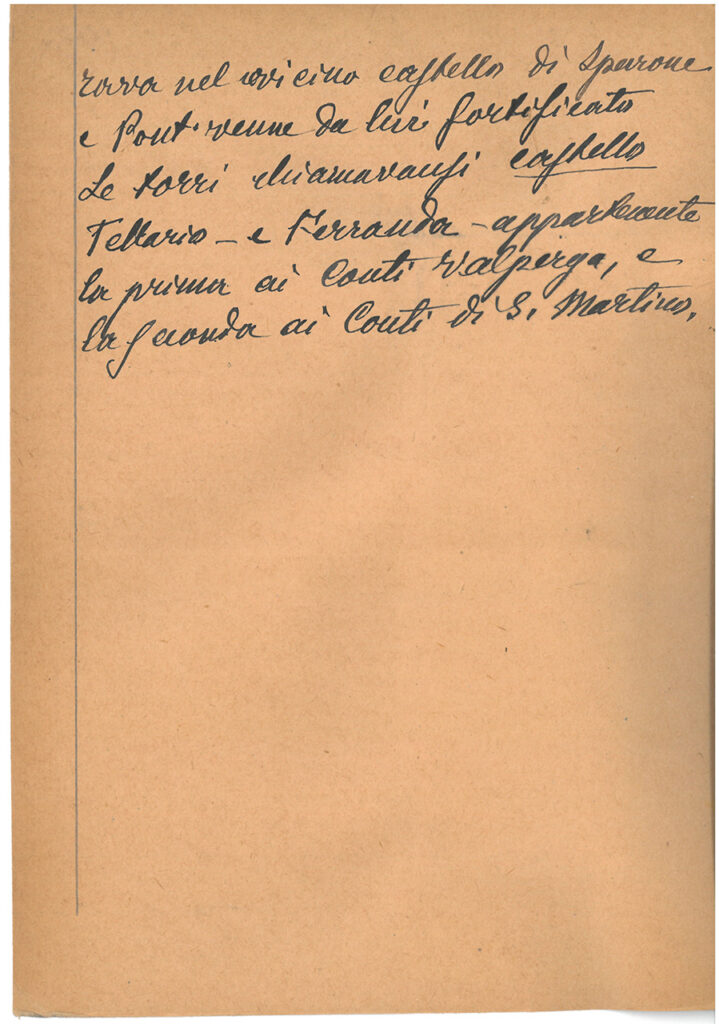 rava nel vicino castello di Sparone
e Pont venne da lui fortificato
Le torri chiamavansi castello
Tellario - e Ferranda - appartenente
la prima ai Conti Valperga, e
la seconda ai Conti di S. Martino.